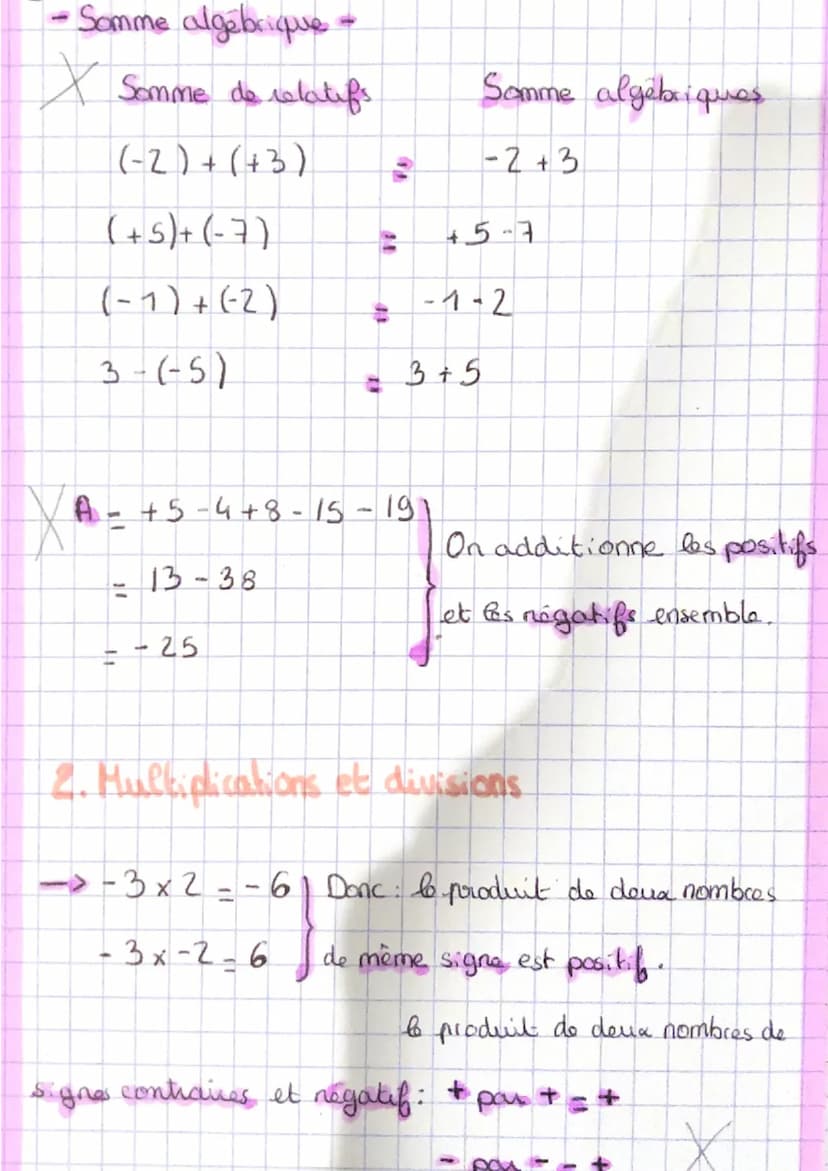 - Somme algébrique -
Somme de relatifs Somme algébriques
(-2) + (+3) = -2 + 3
(+5) + (-7) = +5 - 7
(-1) + (-2) = -1 - 2
3 - (-5) = 3 + 5
A = +5 - 4 + 8 - 15 - 19
On additionne les positifs
= 13 - 38
et les négatifs ensemble.
= - 25
2. Multiplications et divisions
→ -3 x 2 = - 6 Donc : le produit de deux nombres
- 3 x -2 = 6 de même signe est positif.
le produit de deux nombres de
signes contraires et négatif : + par + = +
- par - = +